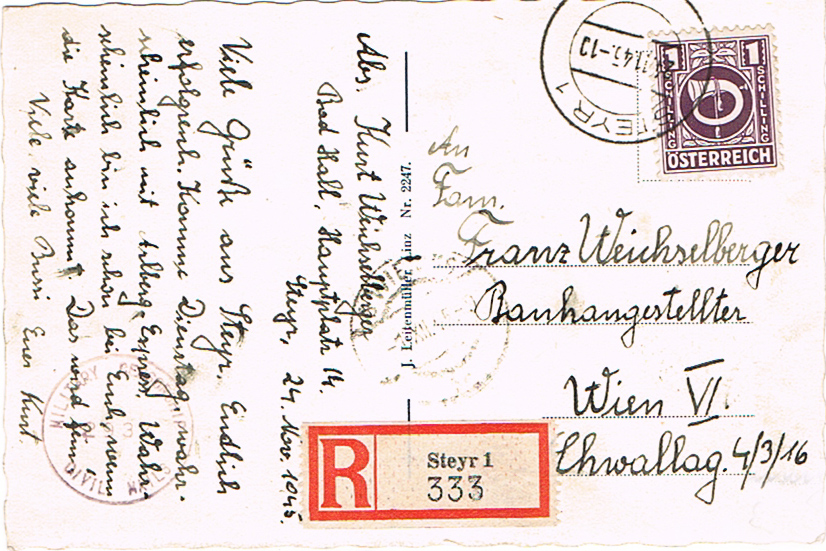 Abs. Kurt Weichselberger
Bad Hall, Hauptplatz 14.
Steyr, 24. Nov. 1945.
Viele Grüße aus Steyr. Endlich
erfolgreich. Komme Dienstag, wahr-
scheinlich mit Arlberg-Express. Wahr-
scheinlich bin ich schon bei Euch, wenn
die Karte ankommt. Das wird fein!
Viele viele Bussi Euer Kurt.
J. Leitenmüller, Linz Nr. 2247.
STEYR 1
1 1
SCHILLING SCHILLING
ÖSTERREICH
An
Fam.
Franz Weichselberger
Bankangestellter
Wien VI.
Chwallag. 4/3/16
R
Steyr 1
333
MILITARY
CIVIL